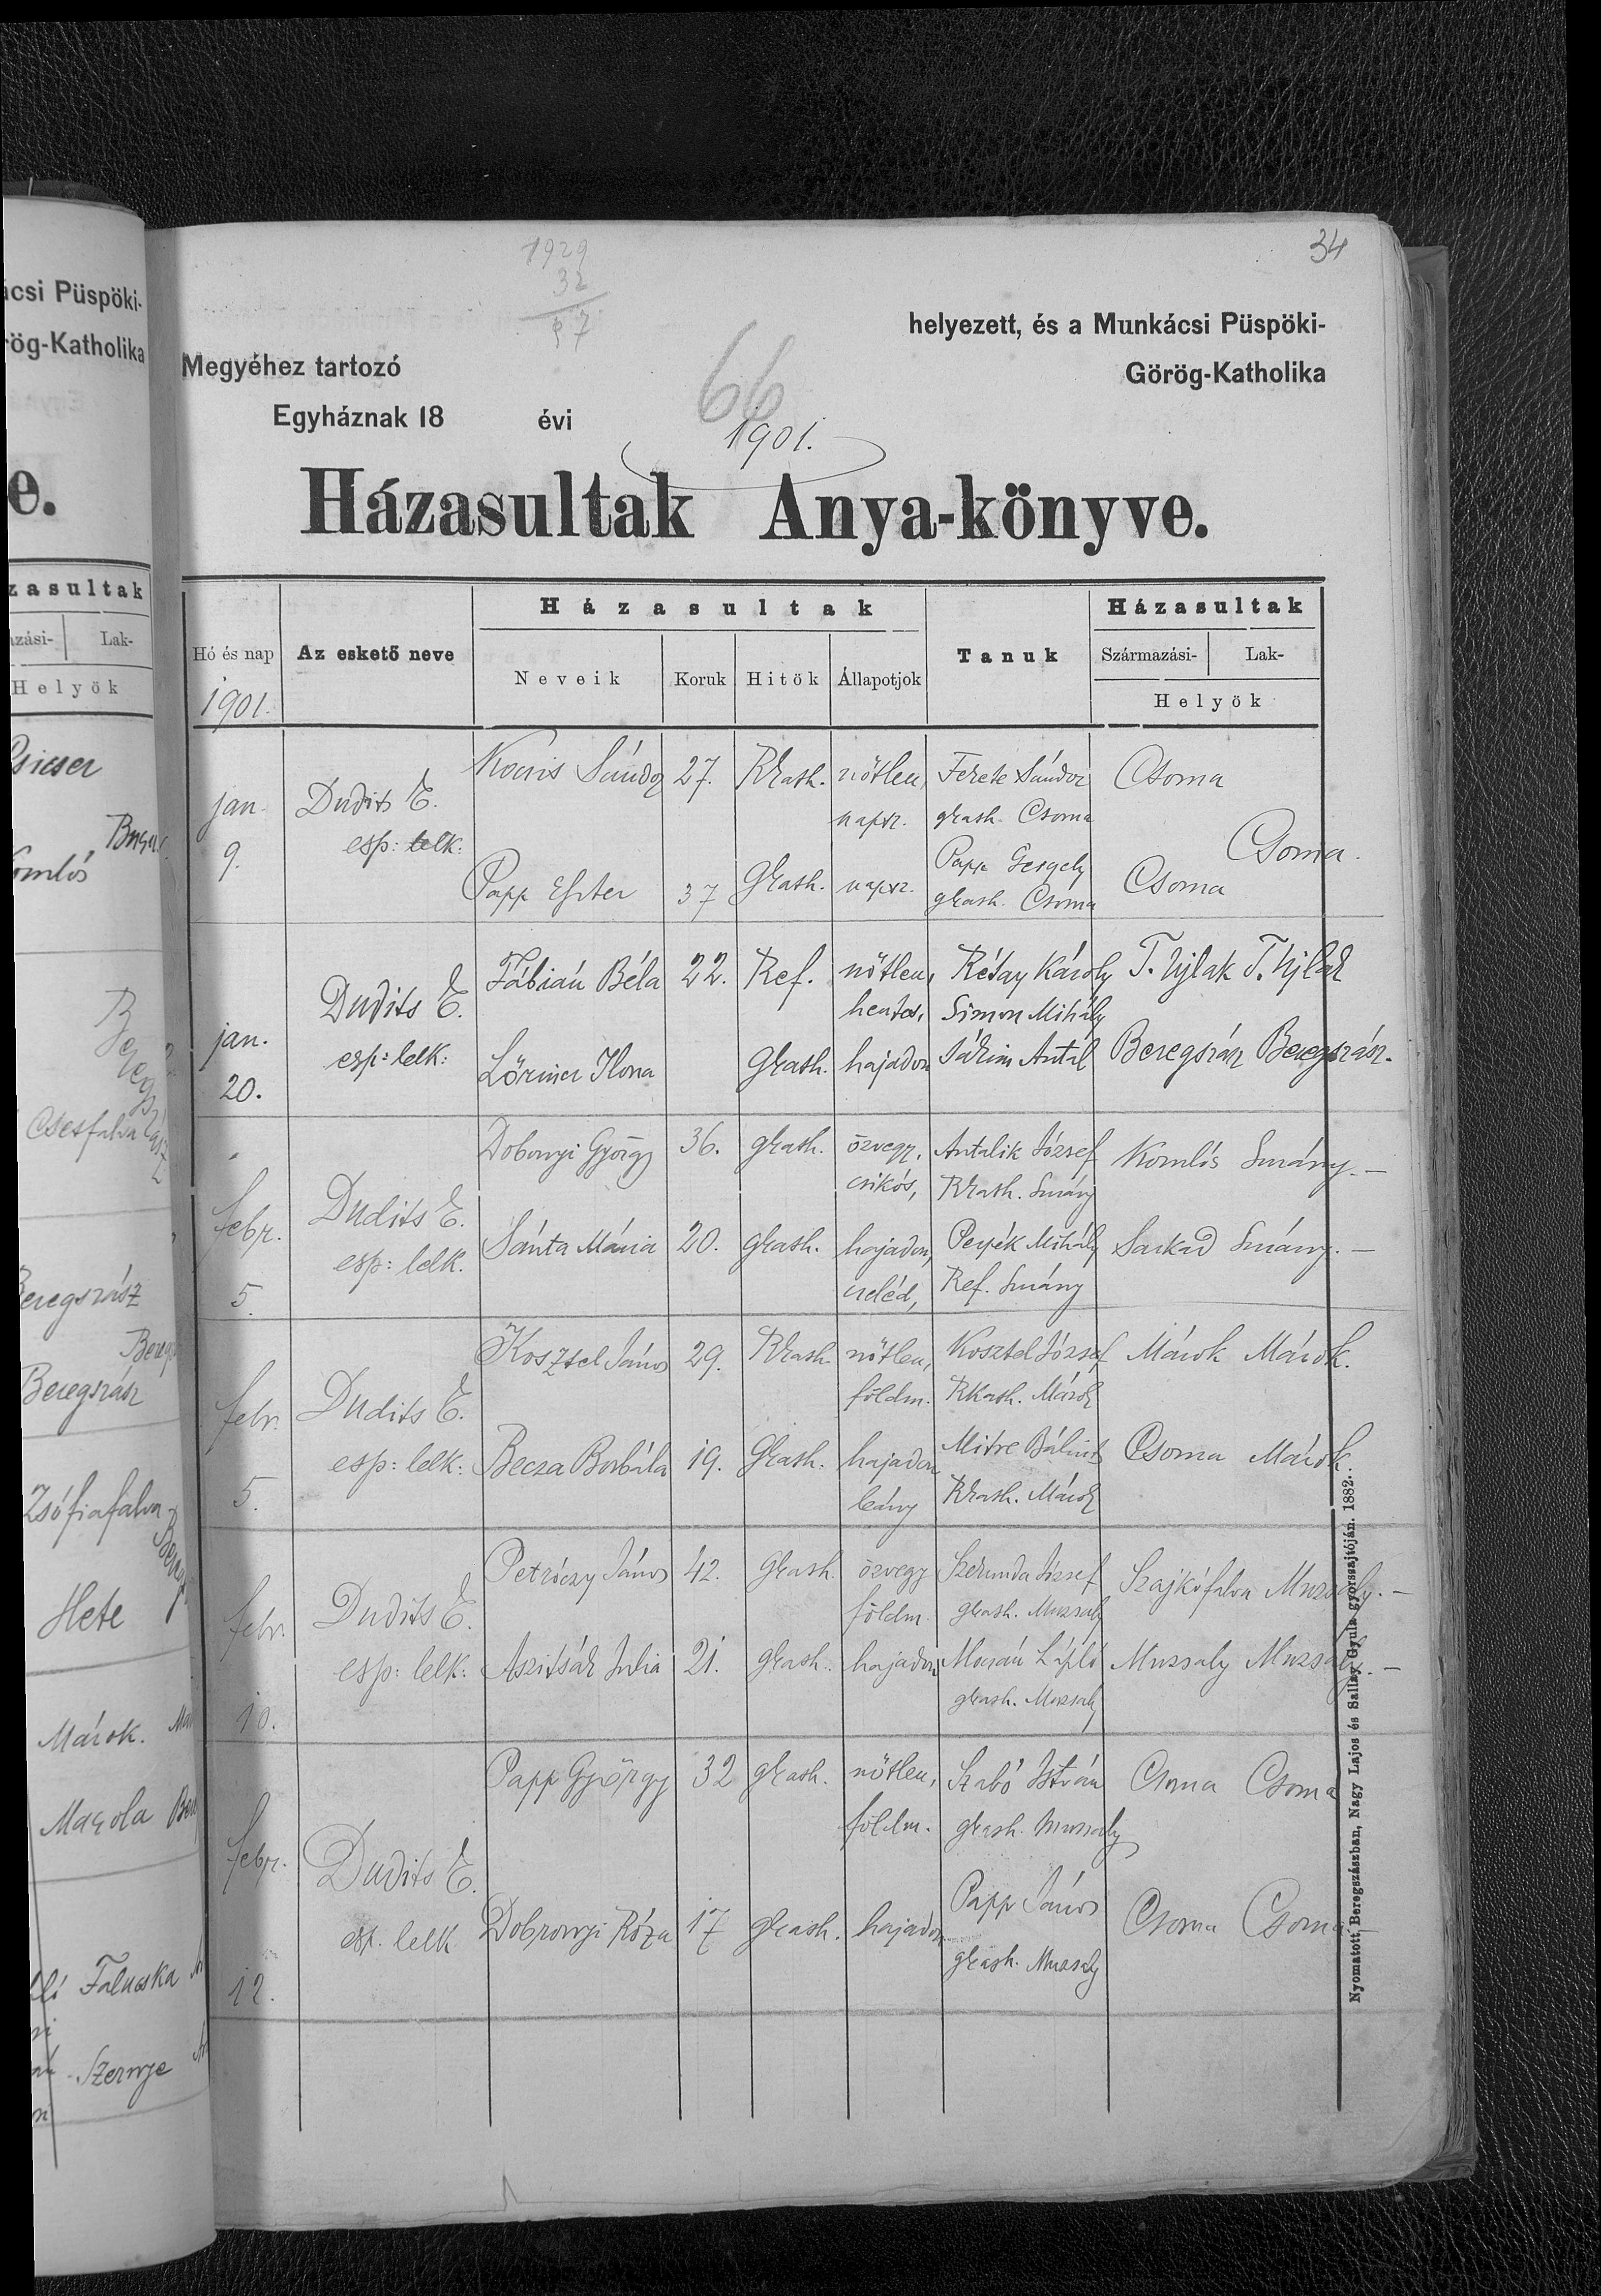 ácsi Püspöki-
rög-Katholika
e.
zasultak
Lak-
Helyök
Csicser
Komlós
Csesfalva
Beregszász
Beregszász
Zsófiafalva
Hete
Márok.
Falucska
Szernye
1929
32
34
helyezett, és a Munkácsi Püspöki-
Megyéhez tartozó
Görög-Katholika
66
Egyháznak 18 évi
1901.
Házasultak Anya-könyve.
Hó és nap
1901.
Az eskető neve
Házasultak
Neveik
Koruk
Hitök
Állapotjok
Tanuk
Házasultak
Származási-
Lak-
Helyök
jan.
9.
Dudits E.
esp: lelk.
Kocsis Sándor 27. Rkath. nőtlen, Fekete Sándor Csoma
napsz. gkath. Csoma
Csoma.
Papp Eszter 37 Gkath. napsz. Papp Gergely Csoma
gkath. Csoma
jan.
20.
Dudits E.
esp: lelk:
Fábián Béla 22. Ref. nőtlen, Rétay Károly T. Ujlak T. Ujlak
hentes, Simon Mihály
Lőrincz Ilona Gkath. hajadon Antal Beregszász Beregszász.
febr.
5.
Dudits E.
esp: lelk.
Dobonyi György 36. gkath. özvegy, Antalik József Komlós Surány. —
csikós, Rkath. Surány
Sánta Mária 20. gkath. hajadon, Mihály Sarkad Surány. —
cseléd, Ref. Surány
febr.
5.
Dudits E.
esp: lelk:
Kosztel János 29. Rkath nőtlen, Kosztel József Márok Márok.
földm. Rkath. Márok
Becza Borbála 19. Gkath. hajadon Mitre Bálint Csoma Márok.
leány Rkath. Márok
febr.
10.
Dudits E.
esp: lelk:
Petróczy János 42. Gkath. özvegy Szkunda József Szajkófalva Muzsaly. —
földm. gkath. Muzsaly
Aszitsák Julia 21. gkath. hajadon László Muzsaly Muzsaly. —
gkath. Muzsaly
febr.
12.
Dudits E.
esp. lelk
Papp György 32 gkath. nőtlen, Szabó István Csoma Csoma
földm. gkath. Muzsaly
Dobronyi Róza 17 gkath. hajadon Papp János Csoma Csoma —
gkath. Muzsaly
Nyomatott Beregszászban, Nagy Lajos és Sallay Gyula gyorssajtóján. 1882.